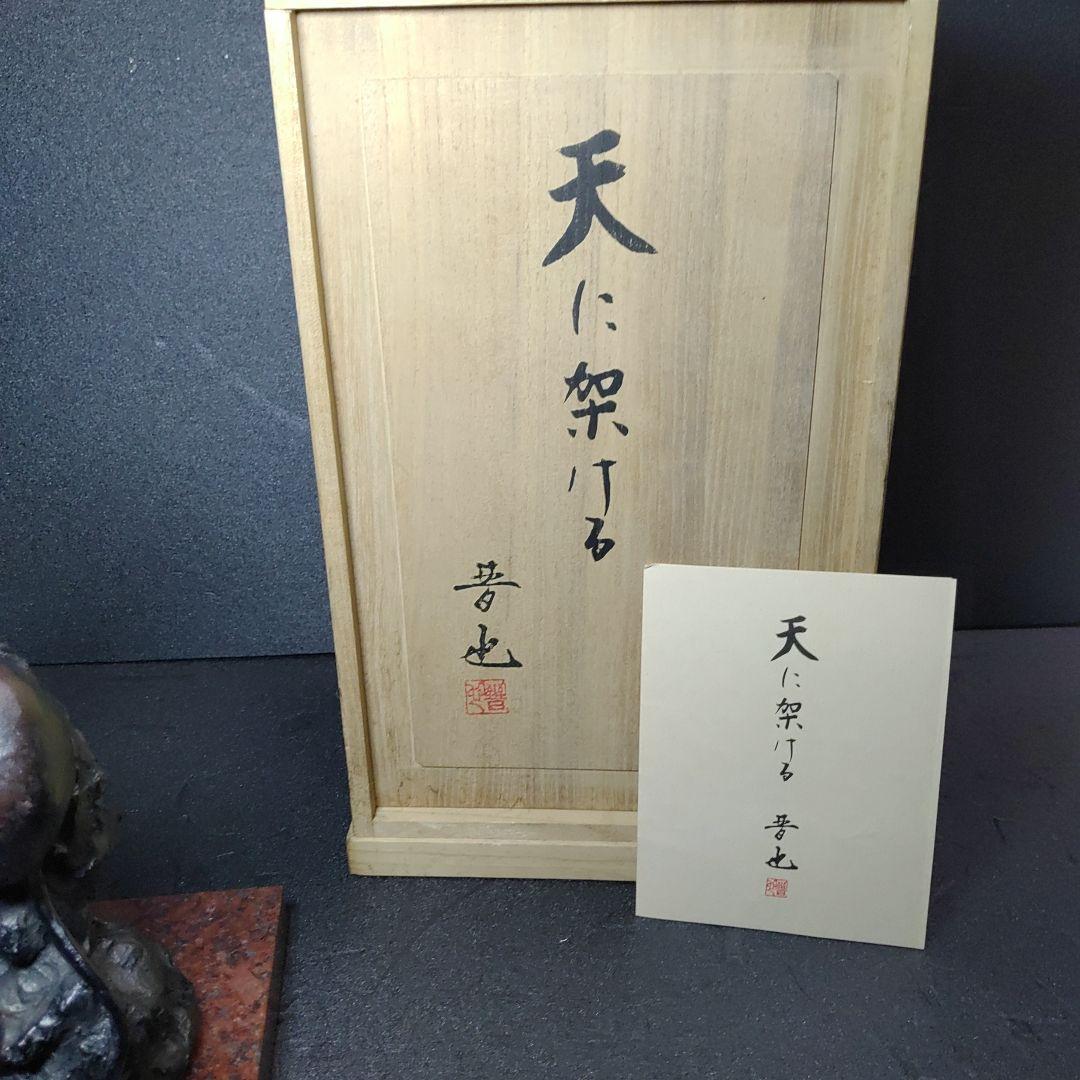 天に架ける
晋也
天に架ける
晋也